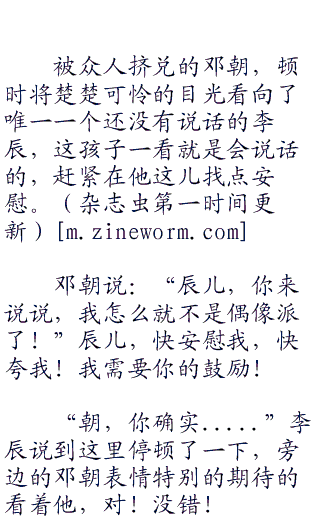 被众人挤兑的邓朝，顿
时将楚楚可怜的目光看向了
唯一一个还没有说话的李
辰，这孩子一看就是会说话
的，赶紧在他这儿找点安
慰。（杂志虫第一时间更
新）[m.zineworm.com]
邓朝说：“辰儿，你来
说说，我怎么就不是偶像派
了！”辰儿，快安慰我，快
夸我！我需要你的鼓励！
“朝，你确实.....”李
辰说到这里停顿了一下，旁
边的邓朝表情特别的期待的
看着他，对！没错！